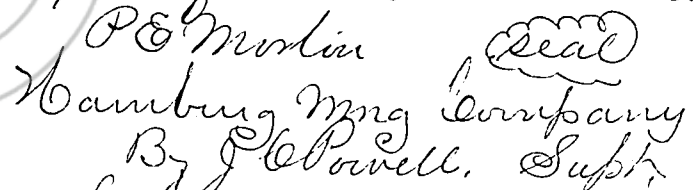 P E Morlin (seal)
Hamburg Mng Company
By J C Powell, Supt.